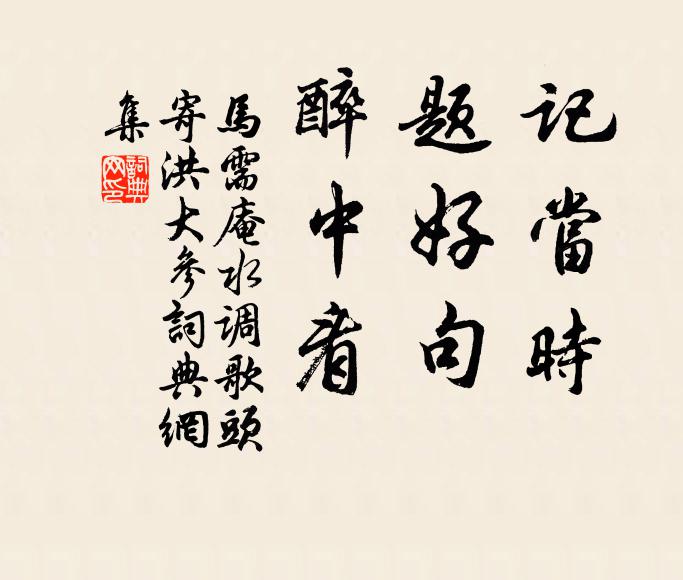 記當時
題好句
醉中看
馬需庵水调歌頭
寄洪大參詞典網
集
詞典
网印